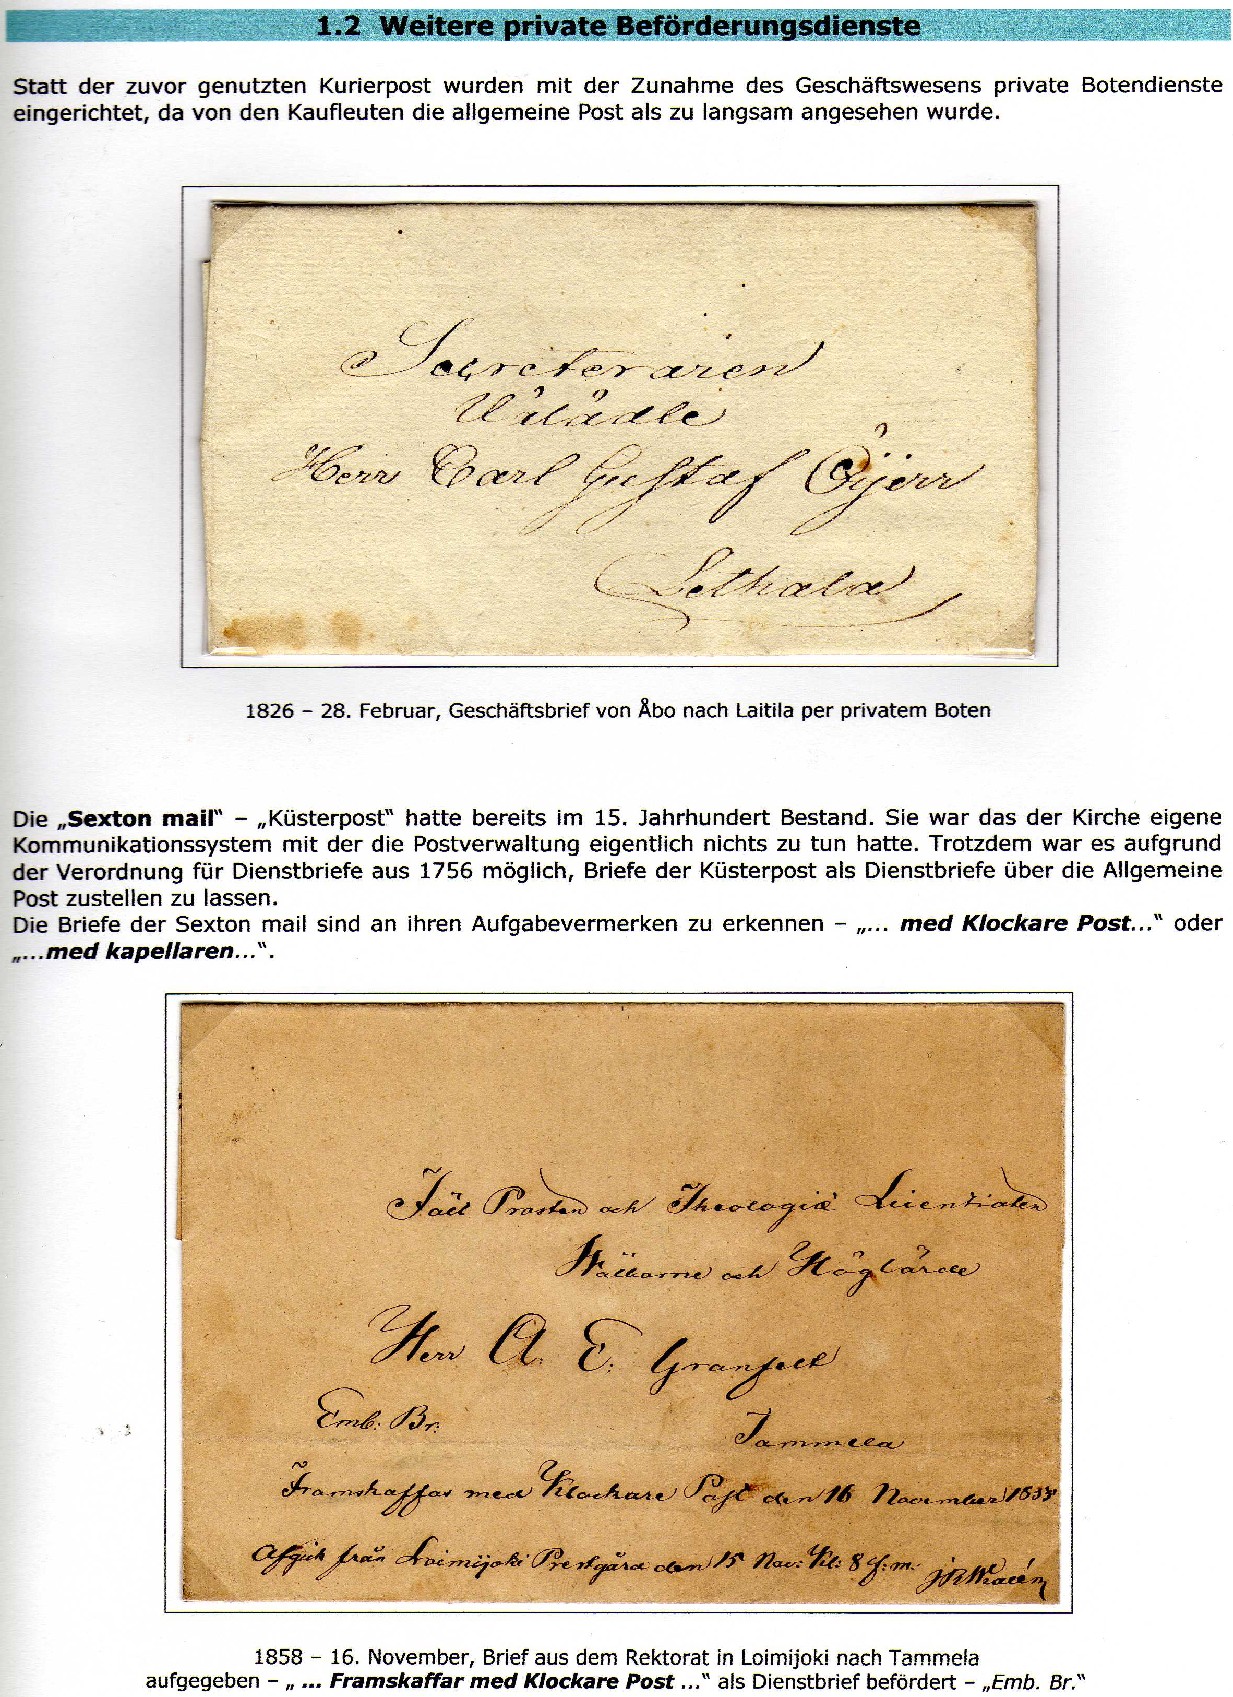 1.2 Weitere private Beförderungsdienste
Statt der zuvor genutzten Kurierpost wurden mit der Zunahme des Geschäftswesens private Botendienste
eingerichtet, da von den Kaufleuten die allgemeine Post als zu langsam angesehen wurde.
Secreteraren
Wälädle
Herr Carl Gustaf Öijerr
Lethala
1826 – 28. Februar, Geschäftsbrief von Åbo nach Laitila per privatem Boten
Die „Sexton mail“ – „Küsterpost“ hatte bereits im 15. Jahrhundert Bestand. Sie war das der Kirche eigene
Kommunikationssystem mit der die Postverwaltung eigentlich nichts zu tun hatte. Trotzdem war es aufgrund
der Verordnung für Dienstbriefe aus 1756 möglich, Briefe der Küsterpost als Dienstbriefe über die Allgemeine
Post zustellen zu lassen.
Die Briefe der Sexton mail sind an ihren Aufgabevermerken zu erkennen – „... med Klockare Post...“ oder
„...med kapellaren...“.
Fält Prosten och Theologiæ Licentiaten
Wällborne och Höglärde
Herr A. E. Granfelt
Emb: Br:
Tammela
Framskaffas med Klockare Post den 16 November
Afgick från Loimijoki Prestgård den 15 Nov: Kl: 8 f:m.
1858 – 16. November, Brief aus dem Rektorat in Loimijoki nach Tammela
aufgegeben – „ ... Framskaffar med Klockare Post ...“ als Dienstbrief befördert – „Emb. Br.“